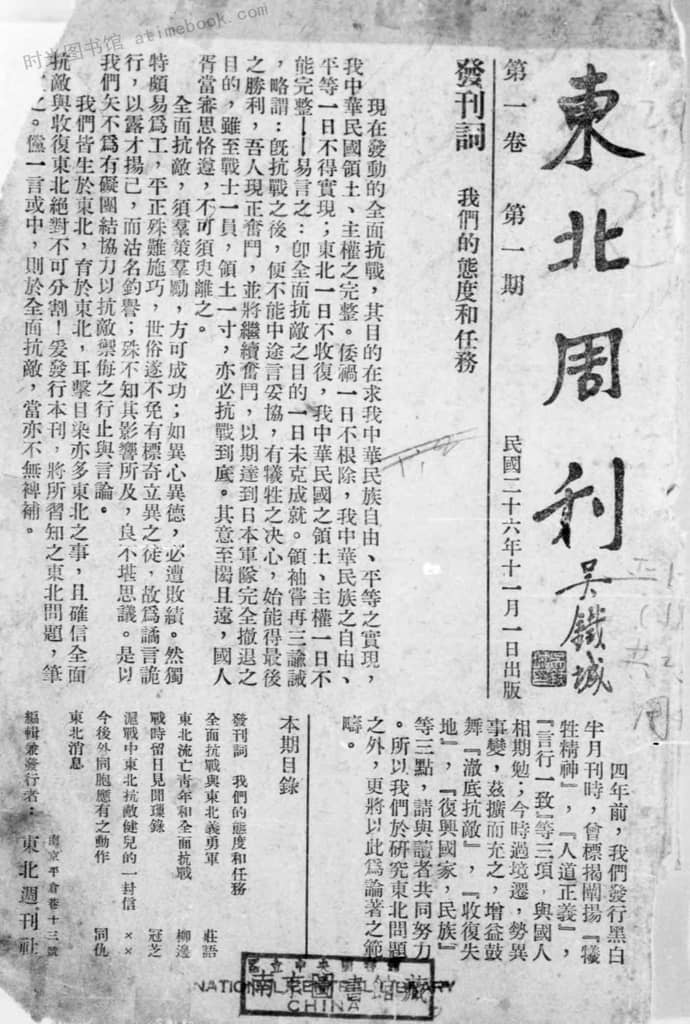 时尚图书馆 atimebook.com
東北周刊
吳鐵城
第一卷 第一期 民國二十六年十一月一日出版
發刊詞 我們的態度和任務
現在發動的全面抗戰，其目的在求我中華民族自由、平等之實現，
我中華民國領土、主權之完整。倭禍一日不根除，我中華民族之自由、
平等一日不得實現；東北一日不收復，我中華民國之領土、主權一日不
能完整——易言之：卽全面抗敵之目的一日未克成就。領袖嘗再三諭誡
，略謂：旣抗戰之後，便不能中途言妥協，有犧牲之决心，始能得最後
之勝利，吾人現正奮鬥，並將繼續奮鬥，以期達到日本軍隊完全撤退之
目的，雖至戰士一員，領土一寸，亦必抗戰到底。其意至閎且遠，國人
胥當審思恪遵，不可須臾離之。
全面抗敵，須羣策羣勵，方可成功；如異心異德，必遭敗績。然獨
特頗易爲工，平正殊難施巧，世俗遂不免有標奇立異之徒，故爲譎言詭
行，以露才揚己，而沽名釣譽；殊不知其影響所及，良不堪思議。是以
我們矢不爲有礙團結協力以抗敵禦侮之行止與言論。
我們皆生於東北，育於東北，耳擊目染亦多東北之事，且確信全面
抗敵與收復東北絕對不可分割！爰發行本刊，將所習知之東北問題，筆
之。儻一言或中，則於全面抗敵，當亦不無裨補。
四年前，我們發行黑白
半月刊時，曾標揭闡揚『犧
牲精神』，『人道正義』，
『言行一致』等三項，與國人
相期勉；今時過境遷，勢異
事變，茲擴而充之，增益鼓
舞『澈底抗敵』，『收復失
地』，『復興國家，民族』
等三點，請與讀者共同努力
。所以我們於研究東北問題
之外，更將以此爲論著之範
疇。
本期目錄
發刊詞 我們的態度和任務
全面抗戰與東北義勇軍 莊語
東北流亡靑年和全面抗戰 柳邊
戰時留日見聞瑣錄 冠芝
滬戰中東北抗敵健兒的一封信 ××
今後外同胞應有之動作 同仇
東北消息
編輯兼發行者：東北週刊社
南京平倉巷十三號
南京圖書館藏
NATIONAL CENTRAL LIBRARY
CHINA